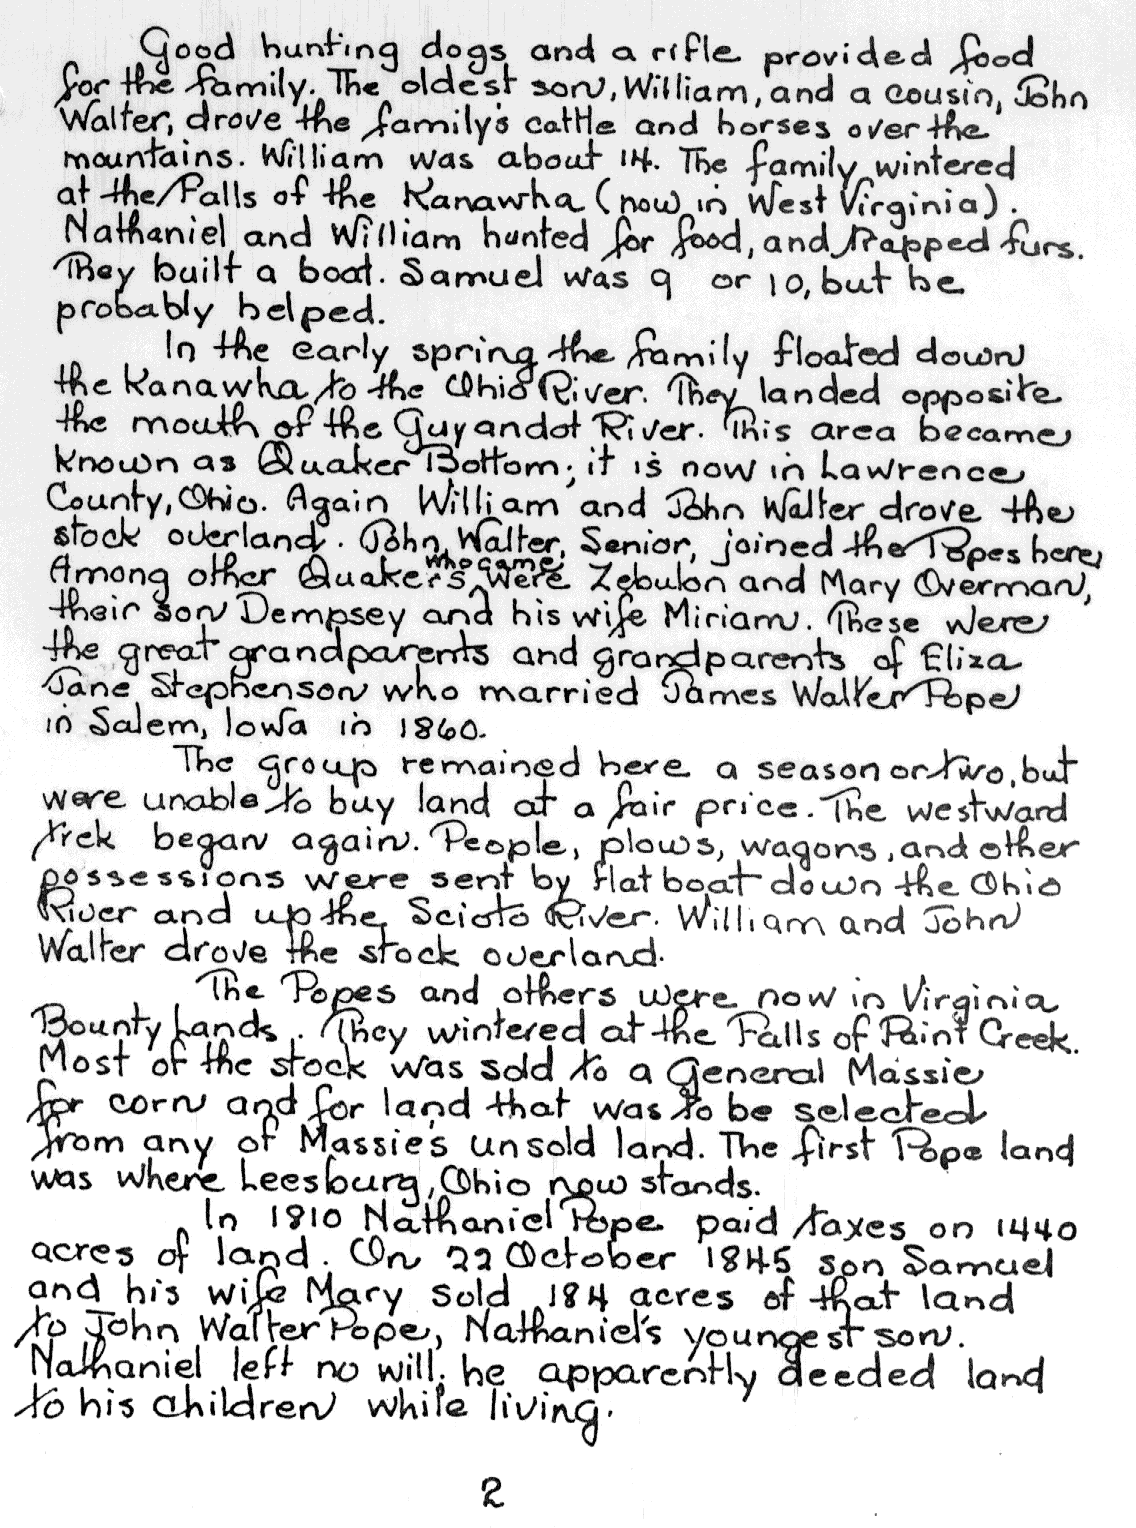 Good hunting dogs and a rifle provided food
for the family. The oldest son, William, and a cousin, John
Walter, drove the family's cattle and horses over the
mountains. William was about 14. The family wintered
at the Falls of the Kanawha (now in West Virginia).
Nathaniel and William hunted for food, and trapped furs.
They built a boat. Samuel was 9 or 10, but he
probably helped.
In the early spring the family floated down
the Kanawha to the Ohio River. They landed opposite
the mouth of the Guyandot River. This area became
known as Quaker Bottom; it is now in Lawrence
County, Ohio. Again William and John Walter drove the
stock overland. John Walter, Senior, joined the Popes here,
Among other Quakers who came were Zebulon and Mary Overman,
their son Dempsey and his wife Miriam. These were
the great grandparents and grandparents of Eliza
Jane Stephenson who married James Walter Pope
in Salem, Iowa in 1860.
The group remained here a season or two, but
were unable to buy land at a fair price. The westward
trek began again. People, plows, wagons, and other
possessions were sent by flat boat down the Ohio
River and up the Scioto River. William and John
Walter drove the stock overland.
The Popes and others were now in Virginia
Bounty Lands. They wintered at the Falls of Paint Creek.
Most of the stock was sold to a General Massie
for corn and for land that was to be selected
from any of Massie's unsold land. The first Pope land
was where Leesburg, Ohio now stands.
In 1810 Nathaniel Pope paid taxes on 1440
acres of land. On 22 October 1845 son Samuel
and his wife Mary sold 184 acres of that land
to John Walter Pope, Nathaniel's youngest son.
Nathaniel left no will; he apparently deeded land
to his children while living.
2